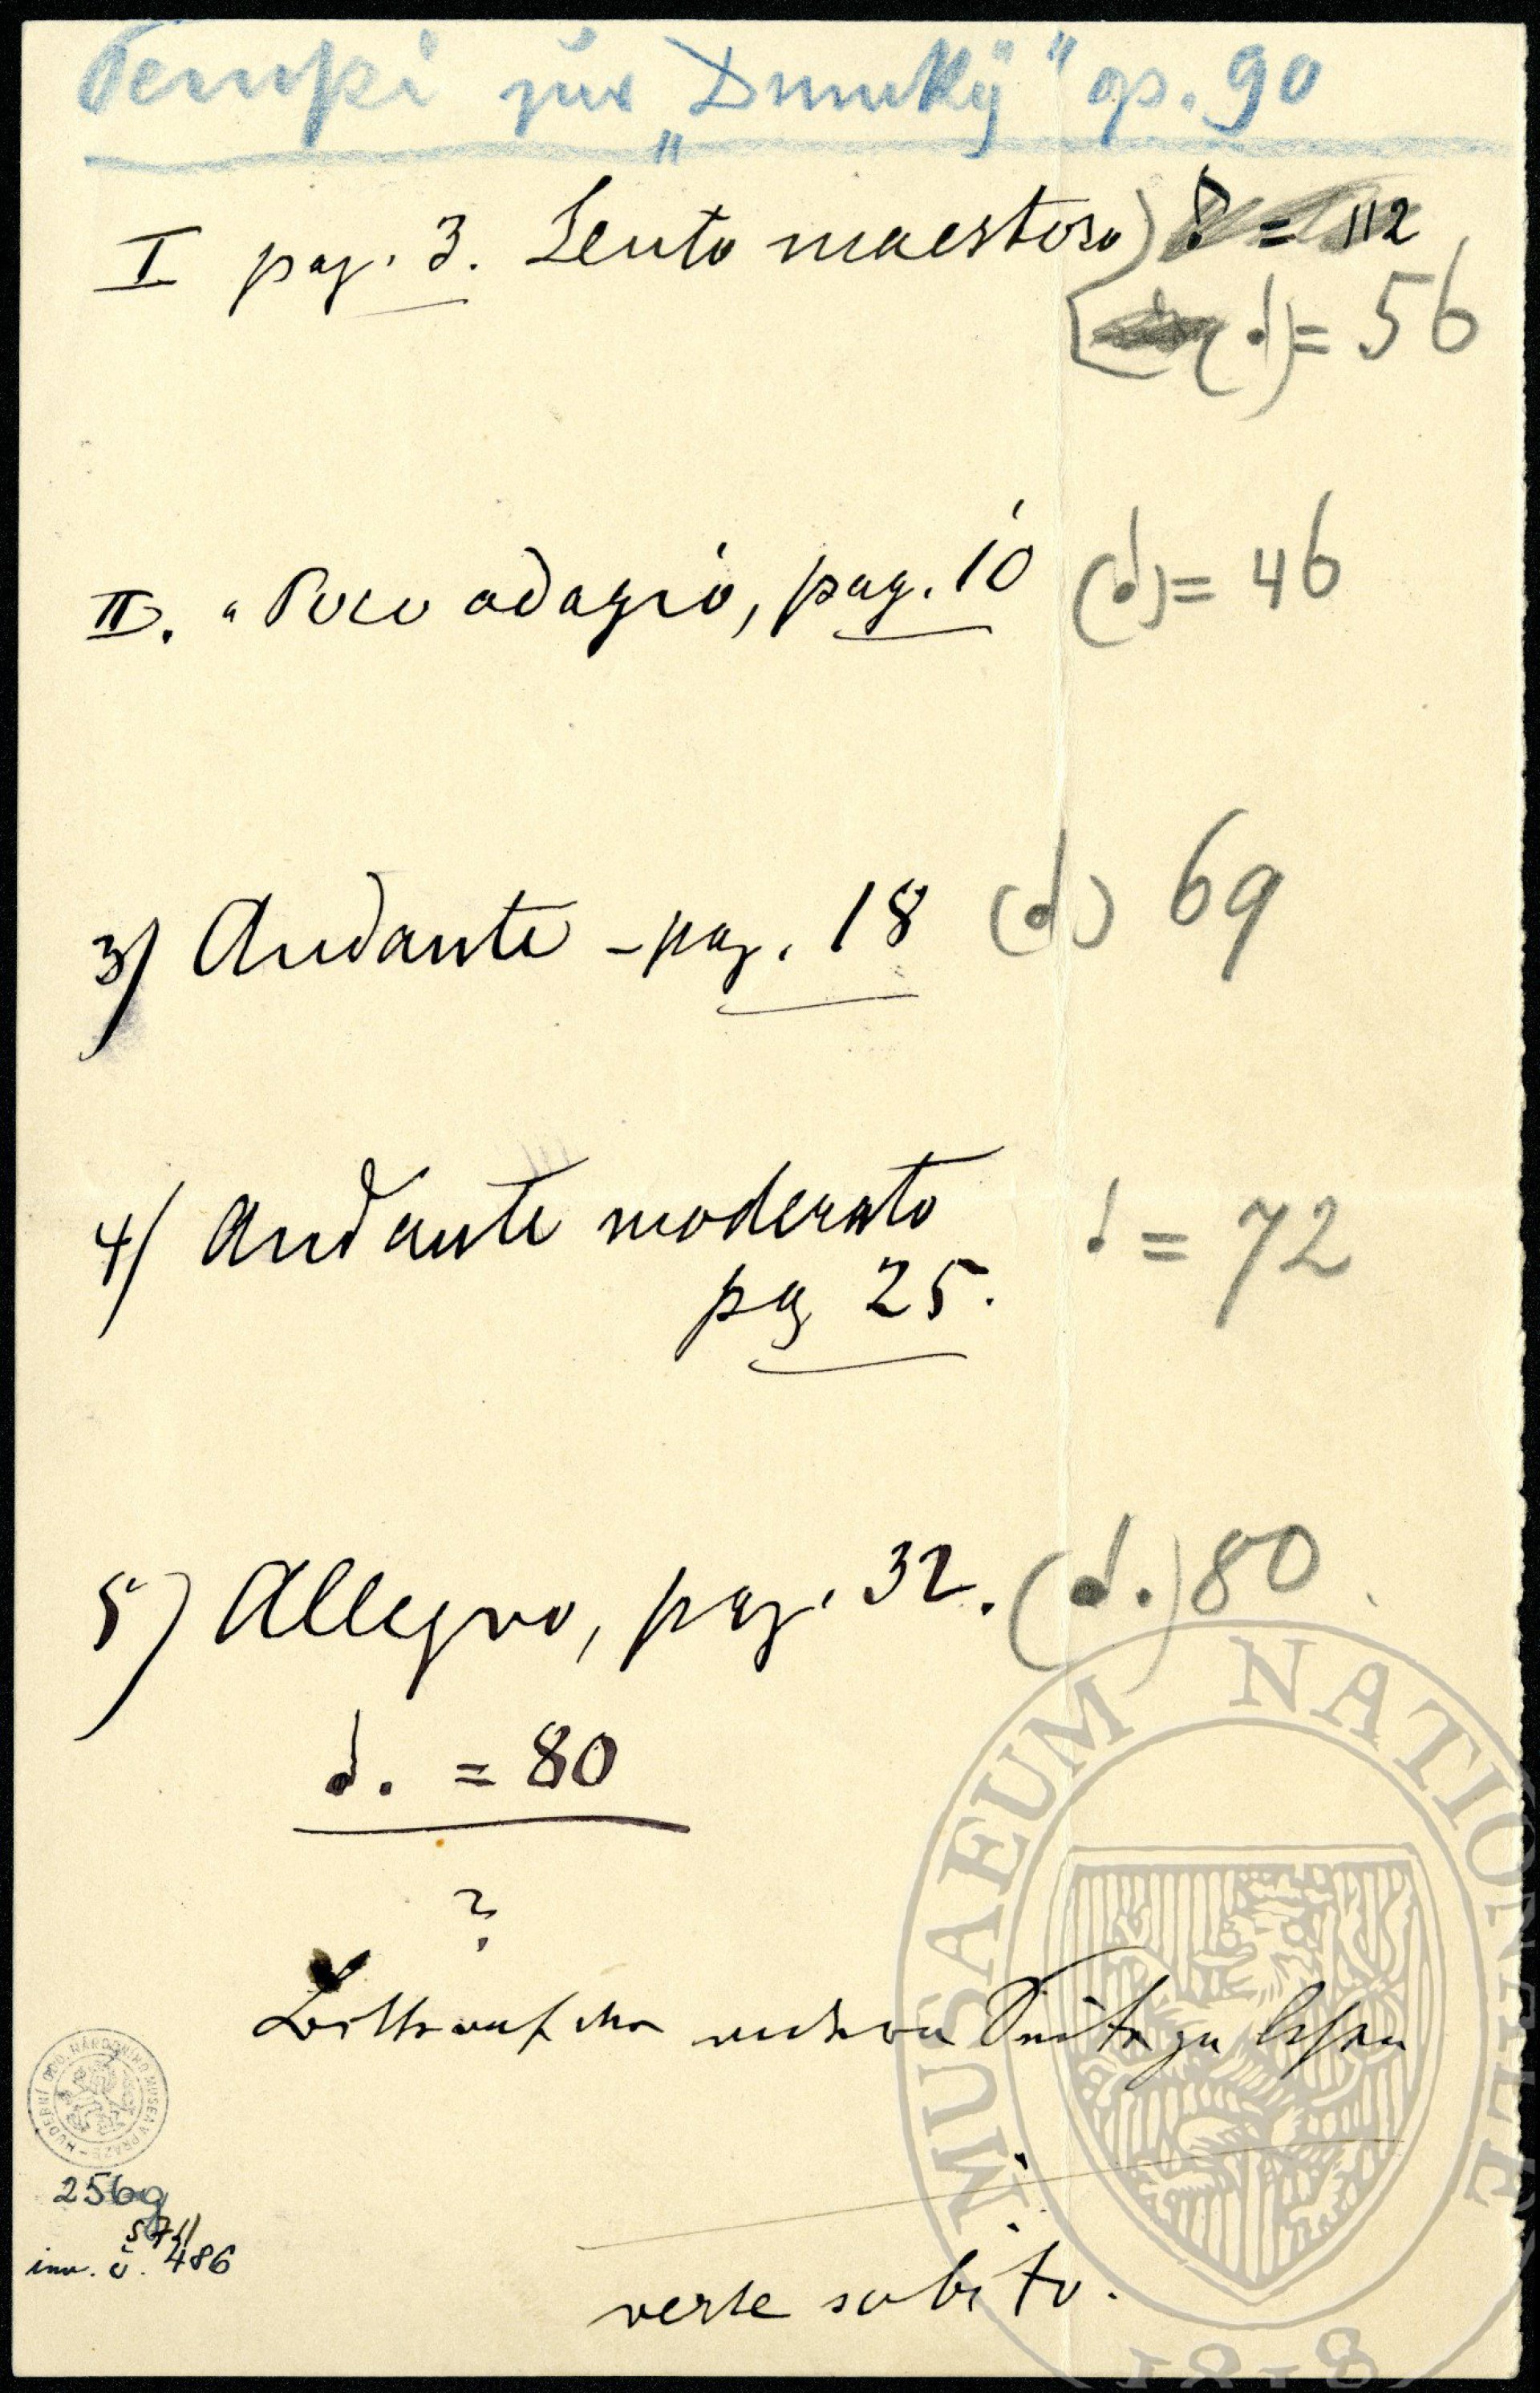 Tempi zur „Dumky" op. 90
I pag. 3. Lento maestoso) ♪ = 112
(♩) = 56
II. " Poco adagio, pag. 10 (♩) = 46
3) Andante - pag. 18 (♩) 69
4) Andante moderato ♩ = 72
pag 25.
5) Allegro, pag. 32. (♩.) 80
♩. = 80
?
Bitte auf der andern Seite zu lesen
verte subito.
HUDEBNÍ ODD. NÁRODNÍHO MUSEA V PRAZE
inv. č. 486
MUSAEUM NATIONALE
1818